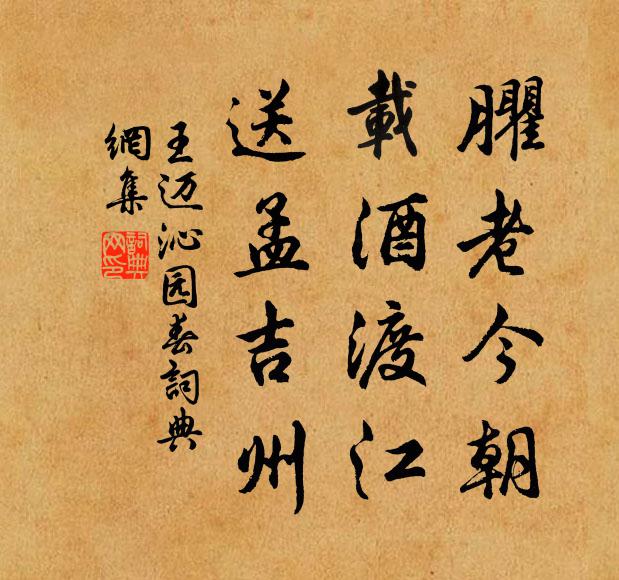 臞老今朝
載酒渡江
送孟吉州
王迈沁园春詞典
網集
詞典
网印